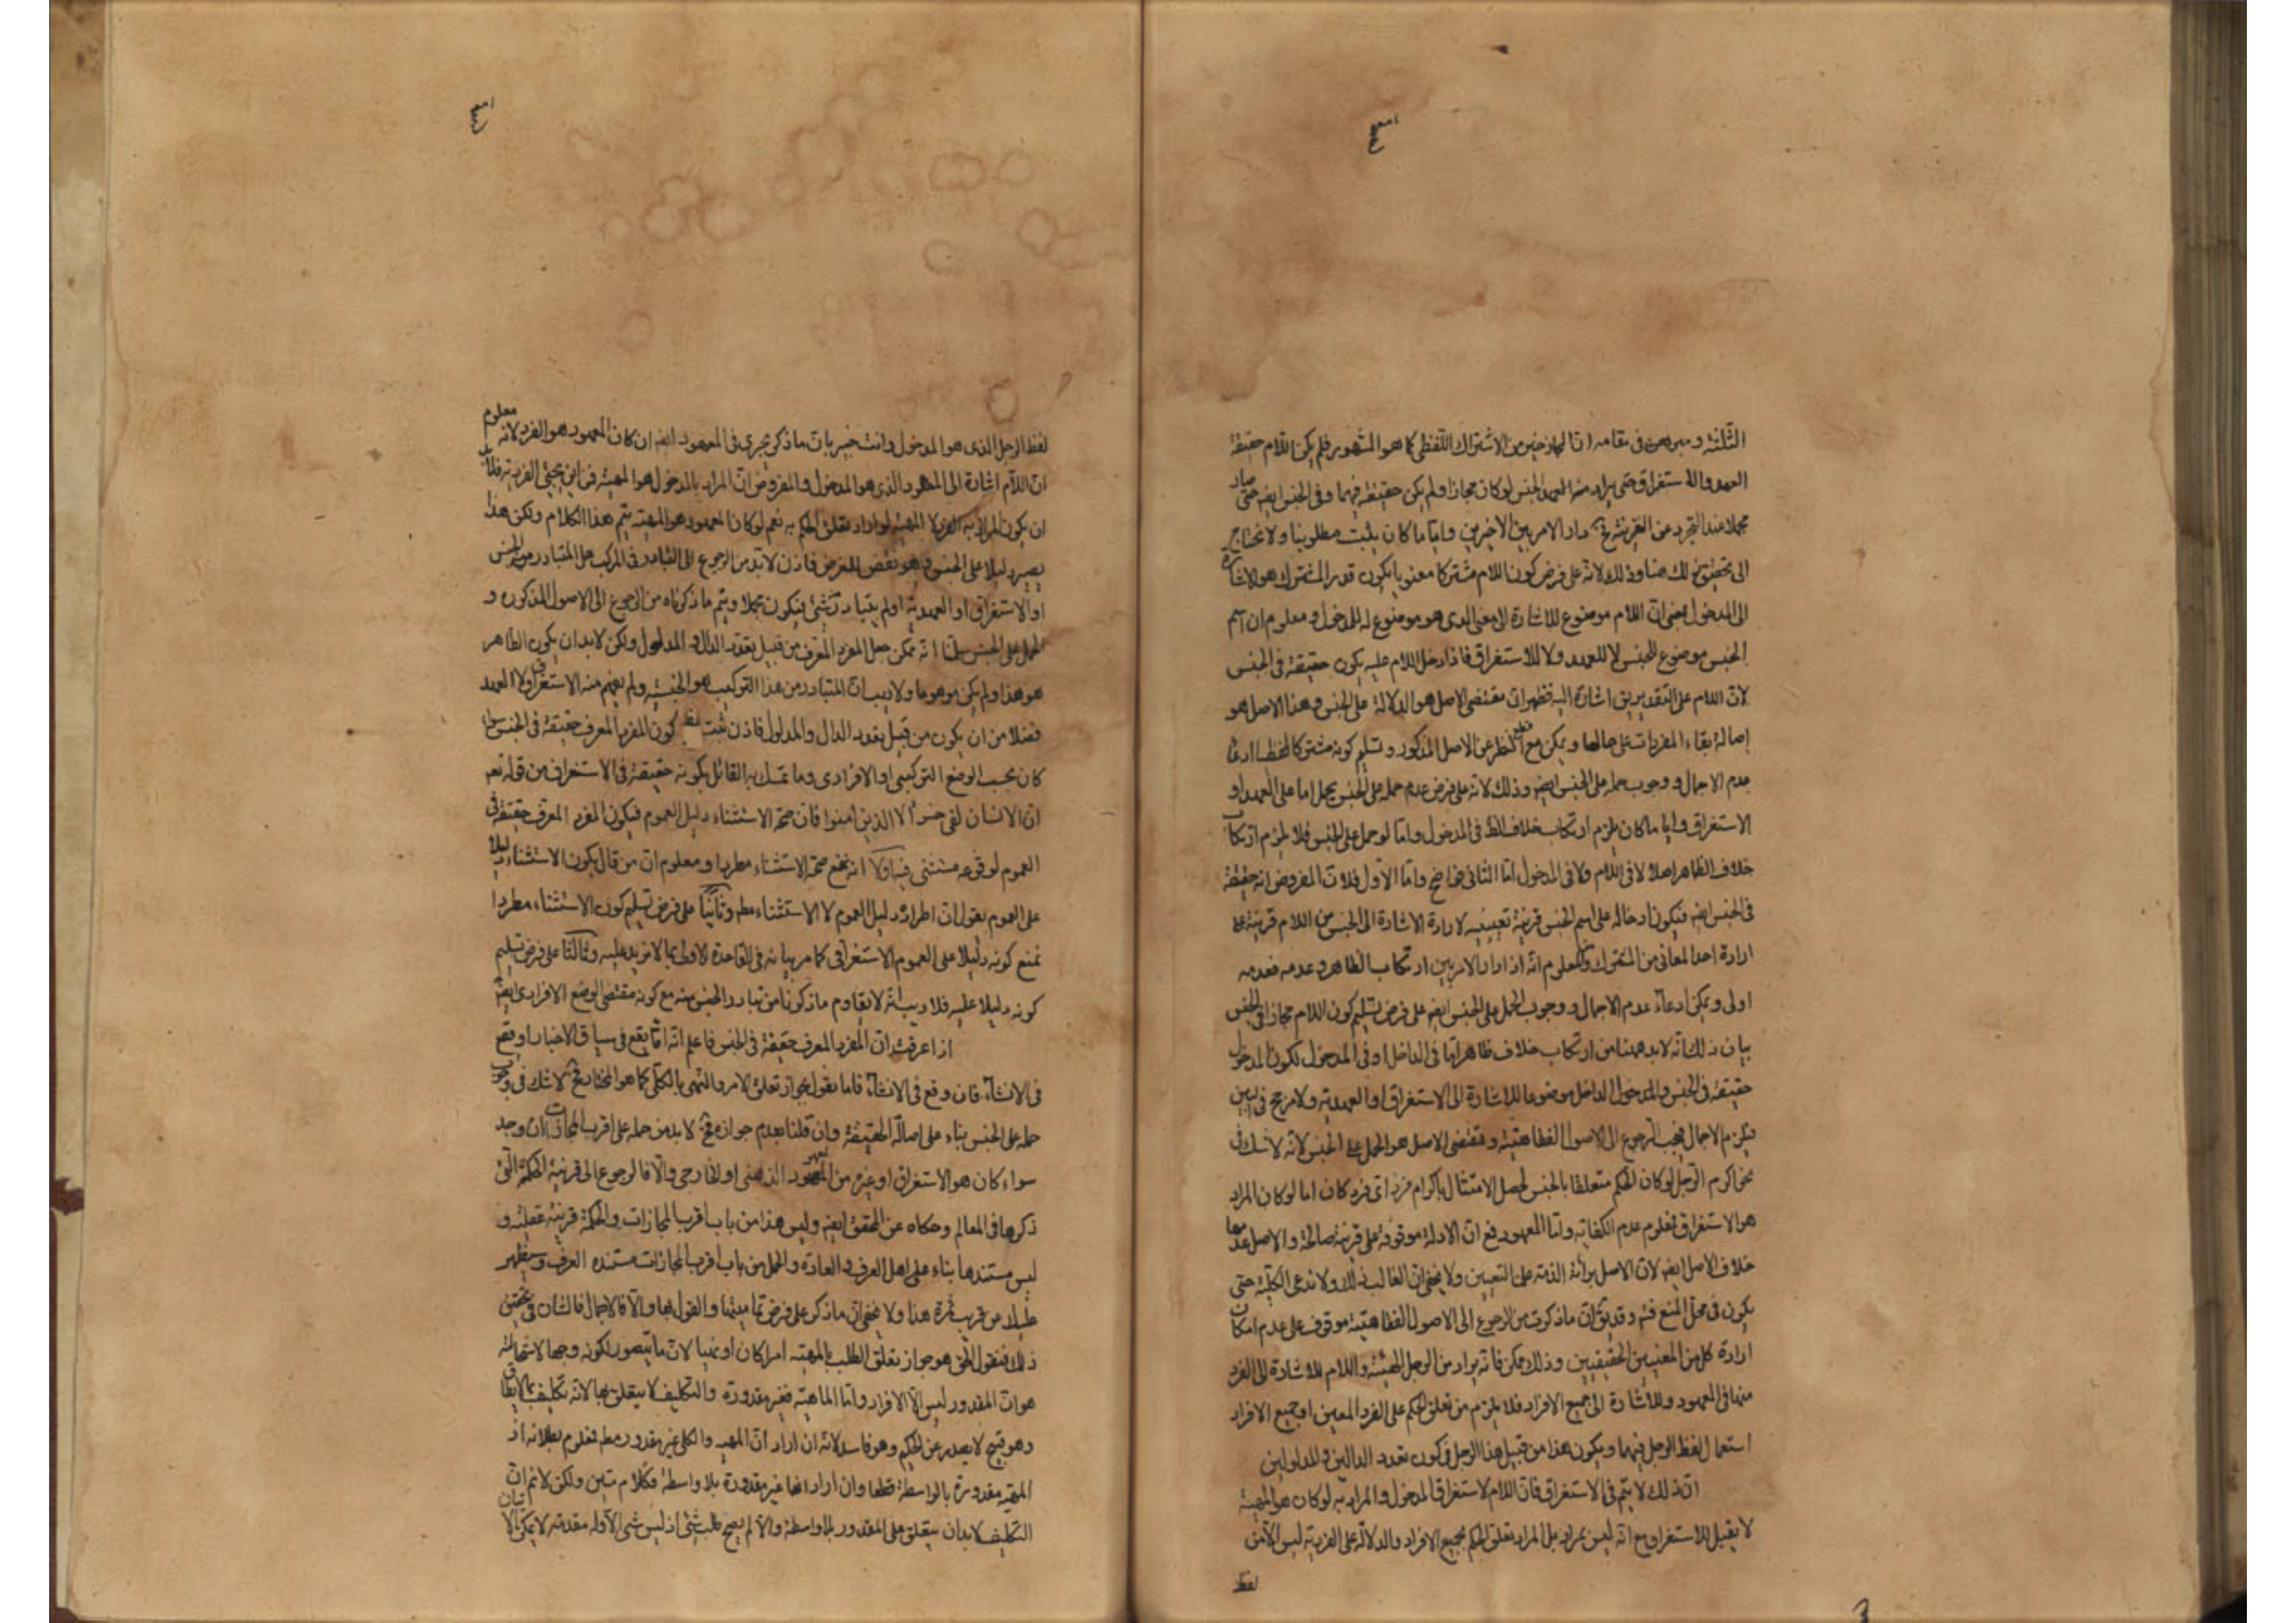 الثلثة ومبرهن في مقامه ان المجاز خير من الاشتراك اللفظي كما هو المشهور فلم يكن اللام حقيقة
العهد والاستغراق حتى يراد منه العهد الجنس لو كان مجازا ولم يكن حقيقة فيهما وفي الجنس ايضا حتى صار
مجملا عند التجرد عن القرينة فح دار الامر بين الاخيرين واياما كان يثبت مطلوبنا ولا نحتاج
الى تحقيق ذلك هنا وذلك لانه على فرض كون اللام مشتركا معنويا يكون قدر المشترك هو الاشارة
الى المدخول بمعنى ان اللام موضوع للاشارة الى معنى الذي هو موضوع له للمدخول ومعلوم ان اسم
الجنس موضوع للجنس لا للعهد ولا للاستغراق فاذا دخل اللام عليه يكون حقيقة في الجنس
لان اللام على التقديرين اشارة اليه فظهر ان مقتضى الاصل هو الدلالة على الجنس وهذا الاصل هو
اصالة بقاء المفردات على حالها ويمكن مع قطع النظر عن الاصل المذكور وتسليم كونه مشتركا لفظا ادعاء
عدم الاجمال ووجوب حمله على الجنس ايضا وذلك لانه على فرض عدم حمله على الجنس يحمل اما على العهد او
الاستغراق وايا ما كان يلزم ارتكاب خلاف الظ في المدخول واما لو حمل على الجنس فلا يلزم ارتكاب
خلاف الظاهر اصلا لا في اللام ولا في المدخول اما الثاني فواضح واما الاول فلان المفروض انه حقيقة
في الجنس ايضا فيكون ادخاله على اسم الجنس قرينة تعيينيه لارادة الاشارة الى الجنس من اللام قرينة على
ارادة احد المعاني من المشترك ومن المعلوم انه اذا دار الامر بين ارتكاب الظاهر وعدمه فعدمه
اولى ويمكن ادعاء عدم الاجمال ووجوب الحمل على الجنس ايضا على فرض تسليم كون اللام مجازا في الجنس
بيان ذلك انه لابد ههنا من ارتكاب خلاف ظاهر اما في الداخل او في المدخول لكون المدخول
حقيقة في الجنس والمدخول الداخل موضوعا للاشارة الى الاستغراق او العهدية ولا مرجح في البين
فيلزم الاجمال فيجب الرجوع الى الاصول الفقاهتية ومقتضى الاصل هو الحمل على الجنس لانه لا شك في
نحو اكرم الرجل لو كان الحكم متعلقا بالجنس لحصل الامتثال باكرام فرد اى فرد كان اما لو كان المراد
هو الاستغراق فمعلوم عدم الكفاية واما المعهود فمع ان الادلة موقوفة على قرينة صالحة والاصل عدمها
خلاف الاصل ايضا لان الاصل برائة الذمة على التعيين ولا يخفى ان الغالب ذلك ولا ندعى الكلية حتى
يكون في محل المنع فتم وقد يقال ان ما ذكرت من الرجوع الى الاصول الفقاهتية موقوف على عدم امكان
ارادة كل من المعنيين الحقيقيين وذلك ممكن فانه يراد من الرجل المهية واللام للاشارة الى الفرد
منها في المعهود وللاشارة الى جميع الافراد فلا يلزم من تعلق الحكم على الفرد المعين او جميع الافراد
استعمال لفظ الرجل فيهما ويكون هذا من قبيل هذا الرجل في كون تعدد الدالين والمدلولين
ان ذلك لا يتم في الاستغراق فان اللام لاستغراق المدخول والمراد به لو كان هو المهية
لا يقبل الاستغراق مع انه ليس بمراد بل المراد تعلق الحكم بجميع الافراد والدلالة على الفردية ليس الا من
لفظ
لفظ الرجل الذي هو المدخول وانت خبير بان ما ذكر يجرى في المعهود ايضا ان كان المعهود هو الفرد لانه معلوم
ان اللام اشارة الى المعهود الذي هو المدخول والمفروض ان المراد بالمدخول هو المهية فمن اين يجئ الفردية فلابد
ان يكون المراد به الفرد لا المهية لو اراد تعلق الحكم به نعم لو كان المعهود هو المهية يتم هذا الكلام ولكن هذا
يصير دليلا على الجنس وهو نقض للغرض فاذن لابد من الرجوع الى التبادر في المركب هل المتبادر منه الجنس
او الاستغراق او العهدية او لم يتبادر شئ فيكون مجملا ويتم ما ذكرناه من الرجوع الى الاصول المذكورة و
الحمل على الجنس سلمنا انه يمكن جعل المفرد المعرف من قبيل تعدد الدال والمدلول ولكن لابد ان يكون الظاهر
هو هذا ولم يكن موهوما ولا ريب ان المتبادر من هذا التركيب هو الجنسية ولم يفهم منه الاستغراق ولا العهد
فضلا من ان يكون من قبيل تعدد الدال والمدلول فاذن ثبت كون المفرد المعرف حقيقة في الجنس سواء
كان بحسب الوضع التركيبي او الافرادى وما تمسك به القائل بكونه حقيقة في الاستغراق من قوله تعه
ان الانسان لفي خسر الا الذين امنوا فان صحة الاستثناء دليل العموم فيكون المفرد المعرف حقيقة في
العموم لوقوعه مستثنى فيه اولا انه نمنع صحة الاستثناء مطردا ومعلوم ان من قال بكون الاستثناء دليلا
على العموم يقول ان اطراده دليل العموم لا الاستثناء مطم وثانيا على فرض تسليم كون الاستثناء مطردا
نمنع كونه دليلا على العموم الاستغراقي كما مر بيانه في القاعدة الاولى بما لا مزيد عليه وثالثا على فرض تسليم
كونه دليلا عليه فلا ريب انه لا يقاوم ما ذكرنا من تبادر الجنس منه مع كونه مقتضى الوضع الافرادى ايضا
اذا عرفت ان المفرد المعرف حقيقة في الجنس فاعلم انه اما يقع في سياق الاخبار او يقع
في الانشاء فان وقع في الانشاء فاما نقول بجواز تعلق الامر والنهى بالكلى كما هو المختار فح لا شك في وجوب
حمله على الجنس بناء على اصالة الحقيقة وان قلنا بعدم جوازه فح لابد من حمله على اقرب المجازات ان وجد
سواء كان هو الاستغراق او غيره من العهود الذهنى او الخارجى والا فالرجوع الى قرينة الحكمة التى
ذكرها في المعالم وحكاه عن المحقق ايضا وليس هذا من باب اقرب المجازات والحكمة قرينة عقلية و
ليس مستندها بناء على اهل العرف والعادة والحمل من باب اقرب المجازات مستنده العرف وسيظهر
عليك من قريب ثمرة هذا ولا يخفى ان ما ذكر على فرض تماميتها والقول بها والا فالاجمال فالشان في تحقيق
ذلك فنقول الحق هو جواز تعلق الطلب بالمهية امرا كان او نهيا لان ما يتصور لكونه وجها لاستحالته
هو ان المقدور ليس الا الافراد واما الماهية فغير مقدورة والتكليف لا يتعلق بها لانه تكليف بما لا يطاق
وهو قبيح لا يصدر عن الحكيم وهو فاسد لانه ان اراد ان المهية والكلى غير مقدور مطم فمعلوم بطلانه اذ
المهية مقدورة بالواسطة قطعا وان اراد انها غير مقدورة بلا واسطة فكلام متين ولكن لا نم ان
التكليف لابد ان يتعلق على المقدور بلا واسطة والا لم يصح طلب شئ اذ ليس شئ الا وله مقدمة لا يمكن اتيان الا